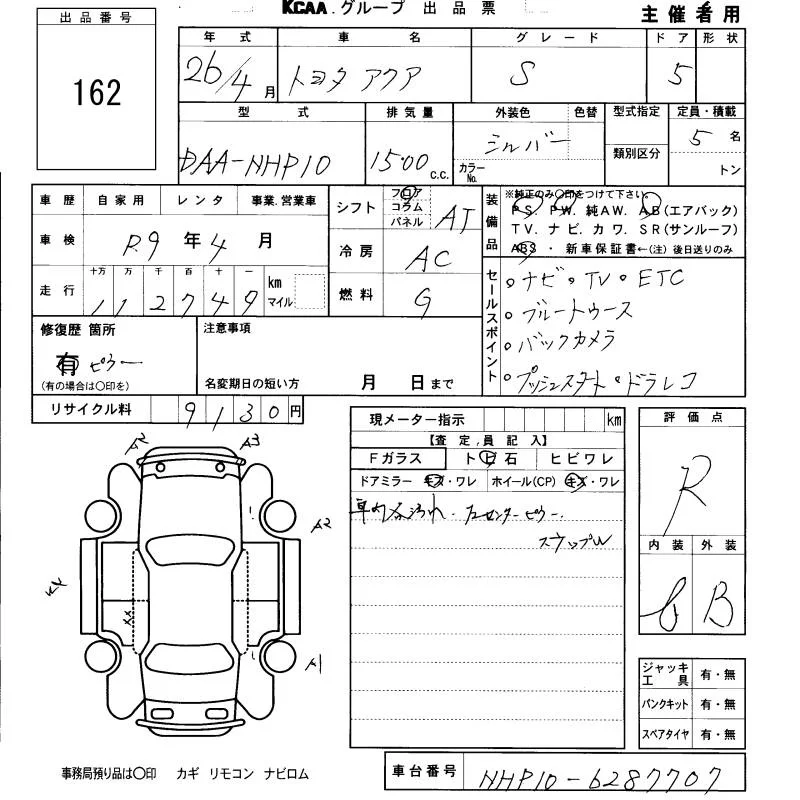 KCAA.グループ 出品票
主催者用
出品番号
162
年式 車名 グレード ドア 形状
26/4月 トヨタ アクア S 5
型式 排気量 外装色 色替 型式指定 定員・積載
DAA-NHP10 1500 c.c. シルバー カラーNo. 類別区分 5名
トン
車歴 自家用 レンタ 事業.営業車
車検 R.9年4月
走行 十万 万 千 百 十 一 km マイル
112749
シフト フロア コラム パネル AT
冷房 AC
燃料 G
装備品 ※純正のみ〇印をつけて下さい。
PS. PW. 純AW. AB(エアバック)
TV. ナビ. カワ. SR(サンルーフ)
ABS ・ 新車保証書←(注) 後日送りのみ
セールスポイント
・ナビ・TV・ETC
・ブルートゥース
・バックカメラ
・プッシュスタート・ドラレコ
修復歴 箇所
有 ピラー
(有の場合は〇印を)
注意事項
名変期日の短い方 月 日まで
リサイクル料 9130円
現メーター指示 km
【査定員記入】
Fガラス ト 石 ヒビワレ
ドアミラー キズ・ワレ ホイール(CP) キズ・ワレ
車内 汚れ センターピラー
スラップル
評価点
R
内装 外装
B
ジャッキ工具 有・無
パンクキット 有・無
スペアタイヤ 有・無
A2 A3
A2
XX
A1
事務局預り品は〇印 カギ リモコン ナビロム
車台番号 NHP10-6287707